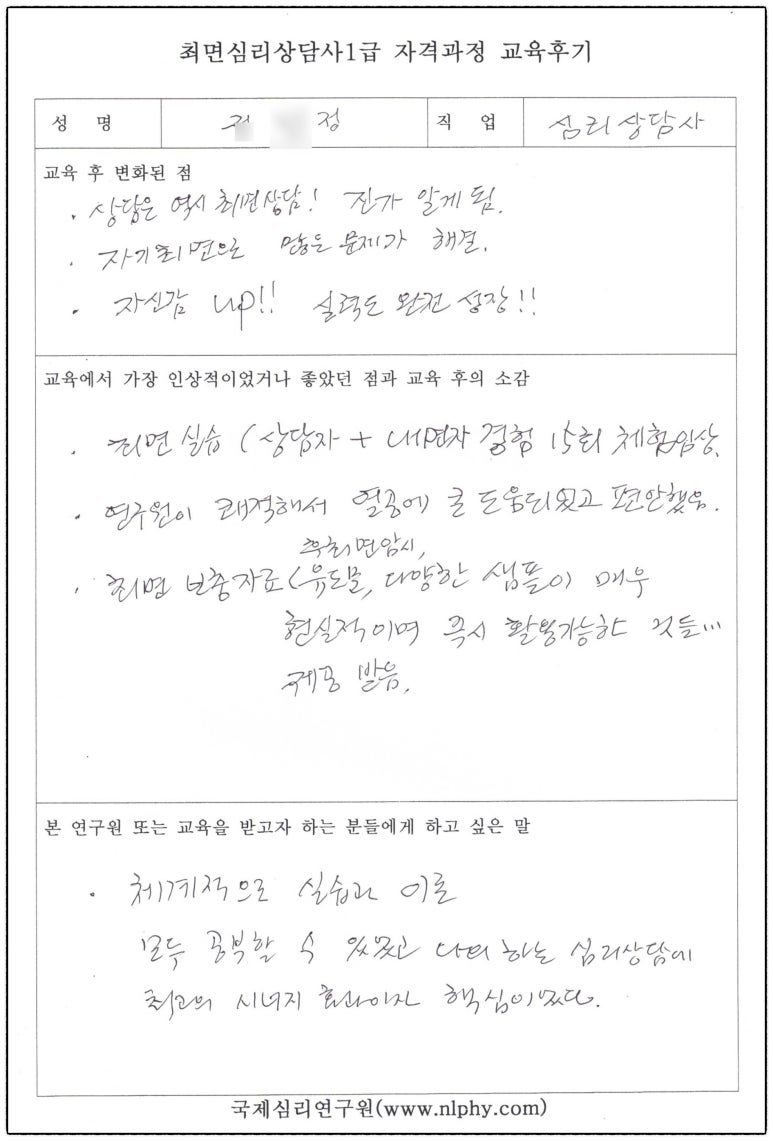 최면심리상담사1급 자격과정 교육후기
성 명 정 직 업 심리상담사
교육 후 변화된 점
· 상담은 역시 최면상담! 진가 알게 됨.
· 자기최면으로 많은 문제가 해결.
· 자신감 up!! 실력도 완전 성장!!
교육에서 가장 인상적이었거나 좋았던 점과 교육 후의 소감
· 최면 실습 (상담자 + 내면자 경험 15회 체험임상.
· 연구원이 쾌적해서 열공에 큰 도움되었고 편안했음.
후최면암시,
· 최면 보충자료(유도물, 다양한 샘플이 매우
현실적이며 즉시 활용가능한 것들...
제공 받음.
본 연구원 또는 교육을 받고자 하는 분들에게 하고 싶은 말
· 체계적으로 실습과 이론
모두 공부할 수 있었고 나의 하는 심리상담에
최고의 시너지 효과이자 핵심이었다.
국제심리연구원(www.nlphy.com)